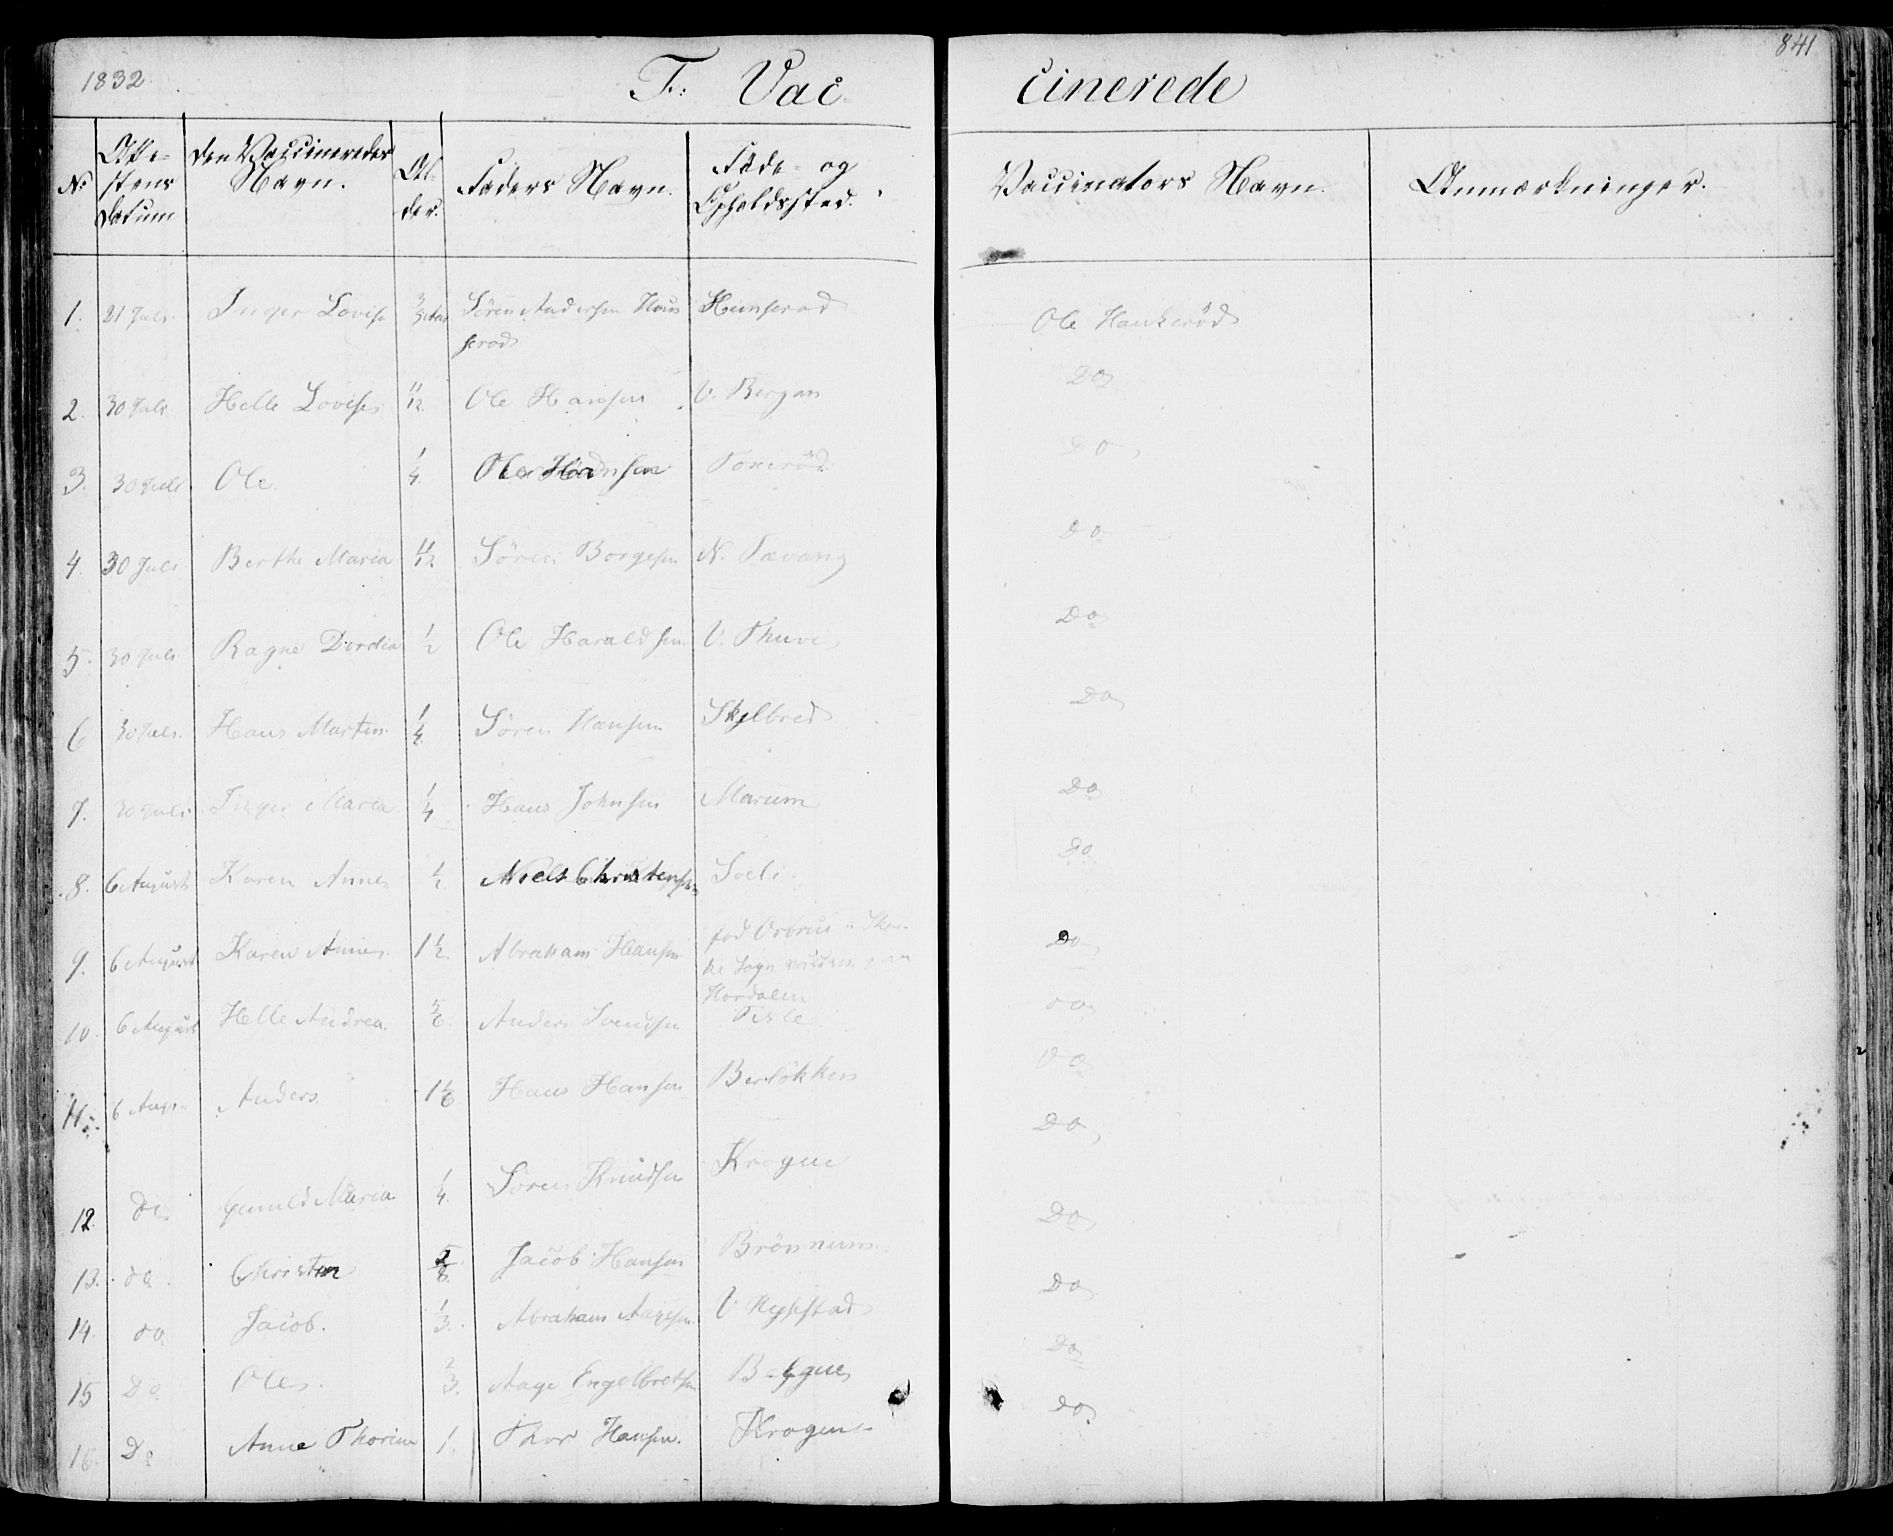 1832
F. Vaccinerede
841
No
Atte-
stens
Datum
den Vaccineredes
Navn.
Al-
der.
Faders Navn.
Føde- og
Opholdssted.
Vaccinators Navn.
Anmærkninger.
1. 21 Juli Inger Lovise 3 Søren Andersen Huns Hunserød Ole Haukerød
serød
2. 30 Juli Helle Lovise 11/12 Ole Hansen V. Bergan Do
3. 30 Juli Ole 1/4 Ole Hansen Do
4. 30 Juli Berthe Maria 11/12 Søren Borgesen N. Tævang Do
5. 30 Juli Ragne Dordia 1/2 Ole Haraldsen V. Thuve Do
6 30 Juli Hans Martin 1/4 Søren Hansen Skjelbred Do
7. 30 Juli Inger Maria 1/4 Hans Johnsen Marum Do
8. 6 August Karen Anne 1/2 Niels Christensen Soeli Do
9. 6 August Karen Anne 1 1/2 Abraham Hansen fød Do
ke Sogn
Hordalen
10. 6 August Helle Andrea 5/6 Anders Svendsen do
11. 6 Aug. Anders 1 1/6 Hans Hansen Berløkken Do
12. do Maria 1/4 Søren Knudsen Krogen Do
13. do. Christen 5/8 Jacob Hansen Brønnum Do
14. do Jacob. 1/3 Abraham Aagesen V Nysestad Do
15 Do Ole 2/3 Aage Engelbretsen Do
16. Do Anne Thorine 1. Thor Hansen. Krogen do